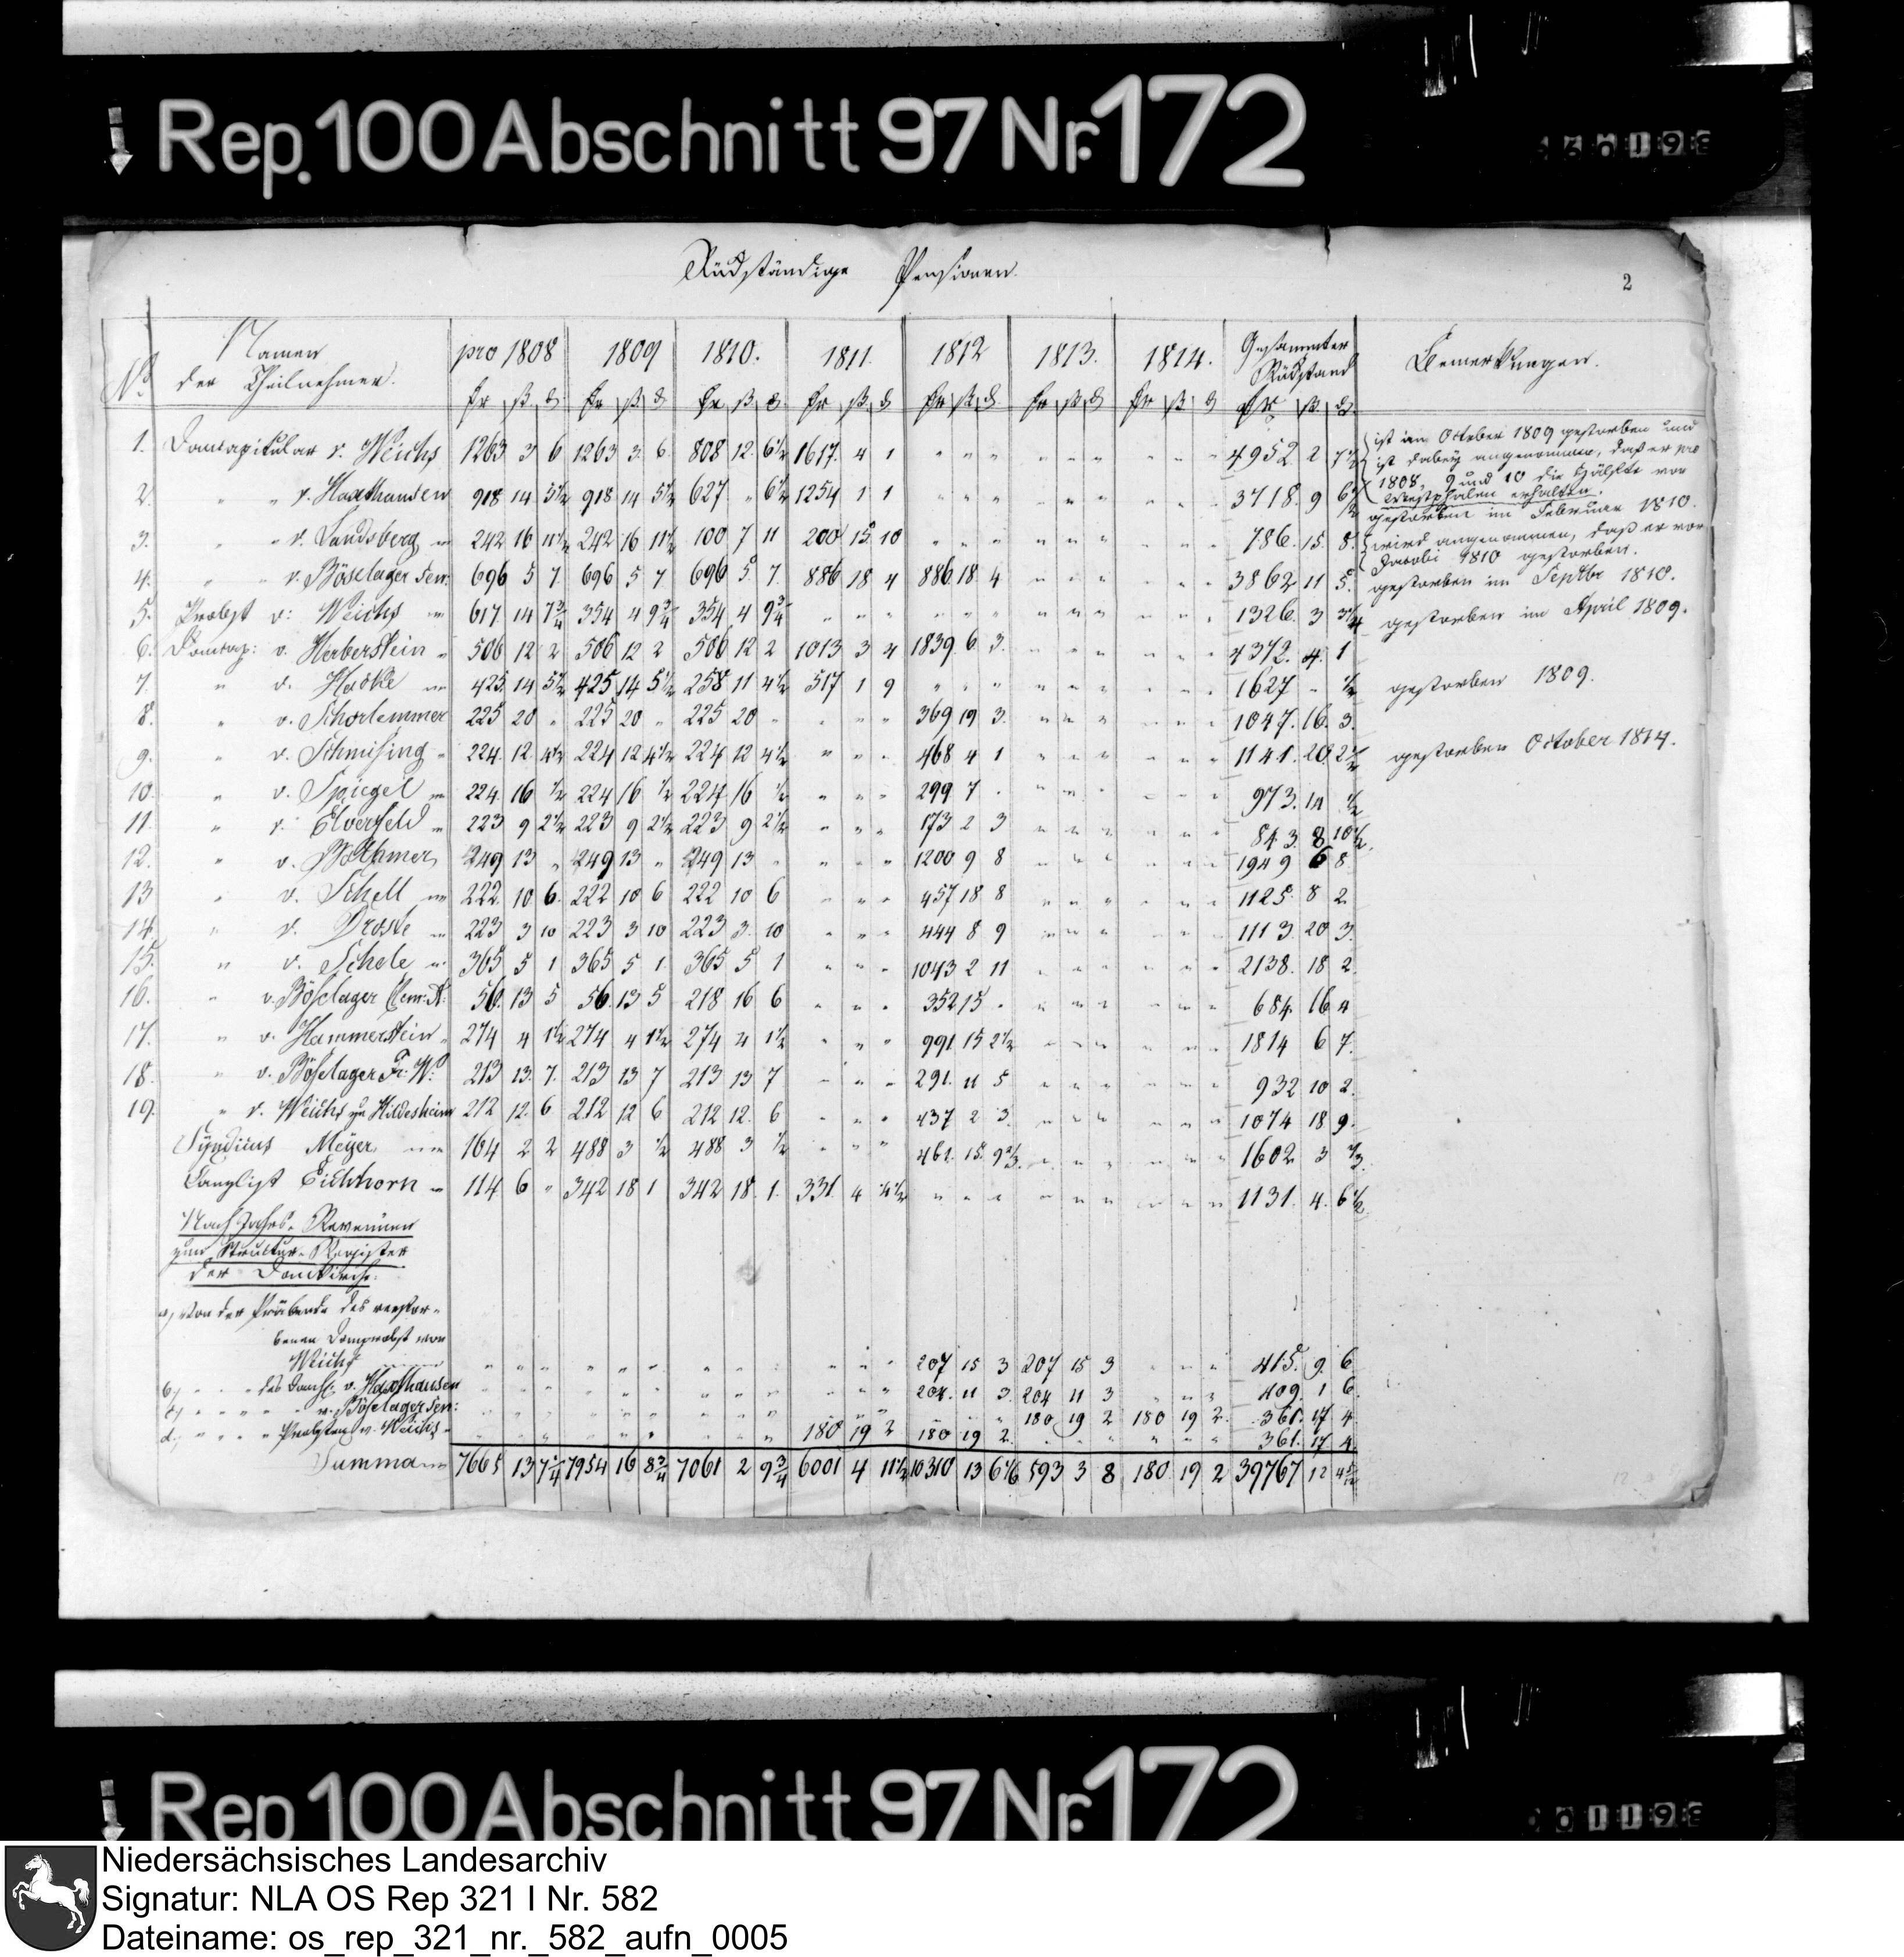 Rep. 100 Abschnitt 97 Nr. 172
Rückständige Pensionen.
2
No. Namen der Theilnehmer. pro 1808 1809 1810. 1811. 1812 1813. 1814. Gesammter Rückstand Bemerkungen.
1. Domcapitular v. Weichs 1263 3 6 1263 3 6 808 12 6½ 1617 4 1 " " " " " " " " " 4952 2 7½ ist im October 1809 gestorben und
ist dabey angenommen, daß er pro
1808, 9 und 10 die Hälfte von
Westphalen erhalten.
2. " " v. Haxthausen 918 14 5½ 918 14 5½ 627 " 6½ 1254 1 1 " " " " " " " " " 3718 9 6½ gestorben im Februar 1810.
3. " " v. Landsberg 242 16 11½ 242 16 11½ 100 7 11 200 15 10 " " " " " " " " " 786 15 8 wird angenommen, daß er vor
Jacobi 1810 gestorben.
4. " " v. Böselager Sen: 696 5 7 696 5 7 696 5 7 886 18 4 886 18 4 " " " " " " 3862 11 5 gestorben im Septbr 1810.
5. Probst v: Weichs 617 14 7¾ 354 4 9¾ 354 4 9¾ " " " " " " " " " " " " 1326 3 3¼ gestorben im April 1809.
6. Domcap: v. Herberstein 506 12 2 506 12 2 506 12 2 1013 3 4 1839 6 3 " " " " " " 4372 4 1
7. " v. Hacke 425 14 5½ 425 14 5½ 258 11 4½ 517 1 9 " " " " " " " " " 1627 " ½ gestorben 1809.
8. " v. Schorlemmer 225 20 " 225 20 " 225 20 " " " " 369 19 3 " " " " " " 1047 16 3
9. " v. Schmising 224 12 4½ 224 12 4½ 224 12 4½ " " " 468 4 1 " " " " " " 1141 20 2½ gestorben October 1814.
10. " v. Spiegel 224 16 ½ 224 16 ½ 224 16 ½ " " " 299 7 " " " " " " " 973 14 ½
11. " v. Elverfeld 223 9 2½ 223 9 2½ 223 9 2½ " " " 173 2 3 " " " " " " 843 8 10½
12. " v. Bothmer 249 13 " 249 13 " 249 13 " " " " 1200 9 8 " " " " " " 1949 6 8
13 " v. Schell 222 10 6 222 10 6 222 10 6 " " " 457 18 8 " " " " " " 1125 8 2
14. " v. Droste 223 3 10 223 3 10 223 3 10 " " " 444 8 9 " " " " " " 1113 20 3
15. " v. Schele 365 5 1 365 5 1 365 5 1 " " " 1043 2 11 " " " " " " 2138 18 2
16. " v. Böselager Clem: A: 56 13 5 56 13 5 218 16 6 " " " 352 15 " " " " " " " 684 16 4
17. " v. Hammerstein 274 4 1½ 274 4 1½ 274 4 1½ " " " 991 15 2½ " " " " " " 1814 6 7
18. " v. Böselager Fr: W: 213 13 7 213 13 7 213 13 7 " " " 291 11 5 " " " " " " 932 10 2
19. " v. Weichs zu Hildesheim 212 12 6 212 12 6 212 12 6 " " " 437 2 3 " " " " " " 1074 18 9
Syndicus Meyer 164 2 2 488 3 ½ 488 3 ½ " " " 461 15 9⅔ " " " " " " 1602 3 ⅔
Canzlist Eichhorn 114 6 " 342 18 1 342 18 1 331 4 4½ " " " " " " " " " 1131 4 6½
Nach Jahrs-Revenüen
zum Structur-Register
der Domkirche.
a) Von der Präbende des verstor-
benen Domprobst von
Weichs " " " " " " " " " " " " 207 15 3 207 15 3 " " " 415 9 6
b) " " " des Domh. v. Haxthausen " " " " " " " " " " " " 204 11 3 204 11 3 " " " 409 1 6
c) " " " " " v. Böselager Sen: " " " " " " " " " " " " " " " 180 19 2 180 19 2 361 17 4
d) " " " " Probsten v. Weichs " " " " " " " " " 180 19 2 180 19 2 " " " " " " 361 17 4
Summa 7665 13 7¼ 7954 16 8¾ 7061 2 9¾ 6001 4 11½ 10310 13 6⅙ 593 3 8 180 19 2 39767 12 4 5/12
Rep 100 Abschnitt 97 Nr. 172
Niedersächsisches Landesarchiv
Signatur: NLA OS Rep 321 I Nr. 582
Dateiname: os_rep_321_nr._582_aufn_0005